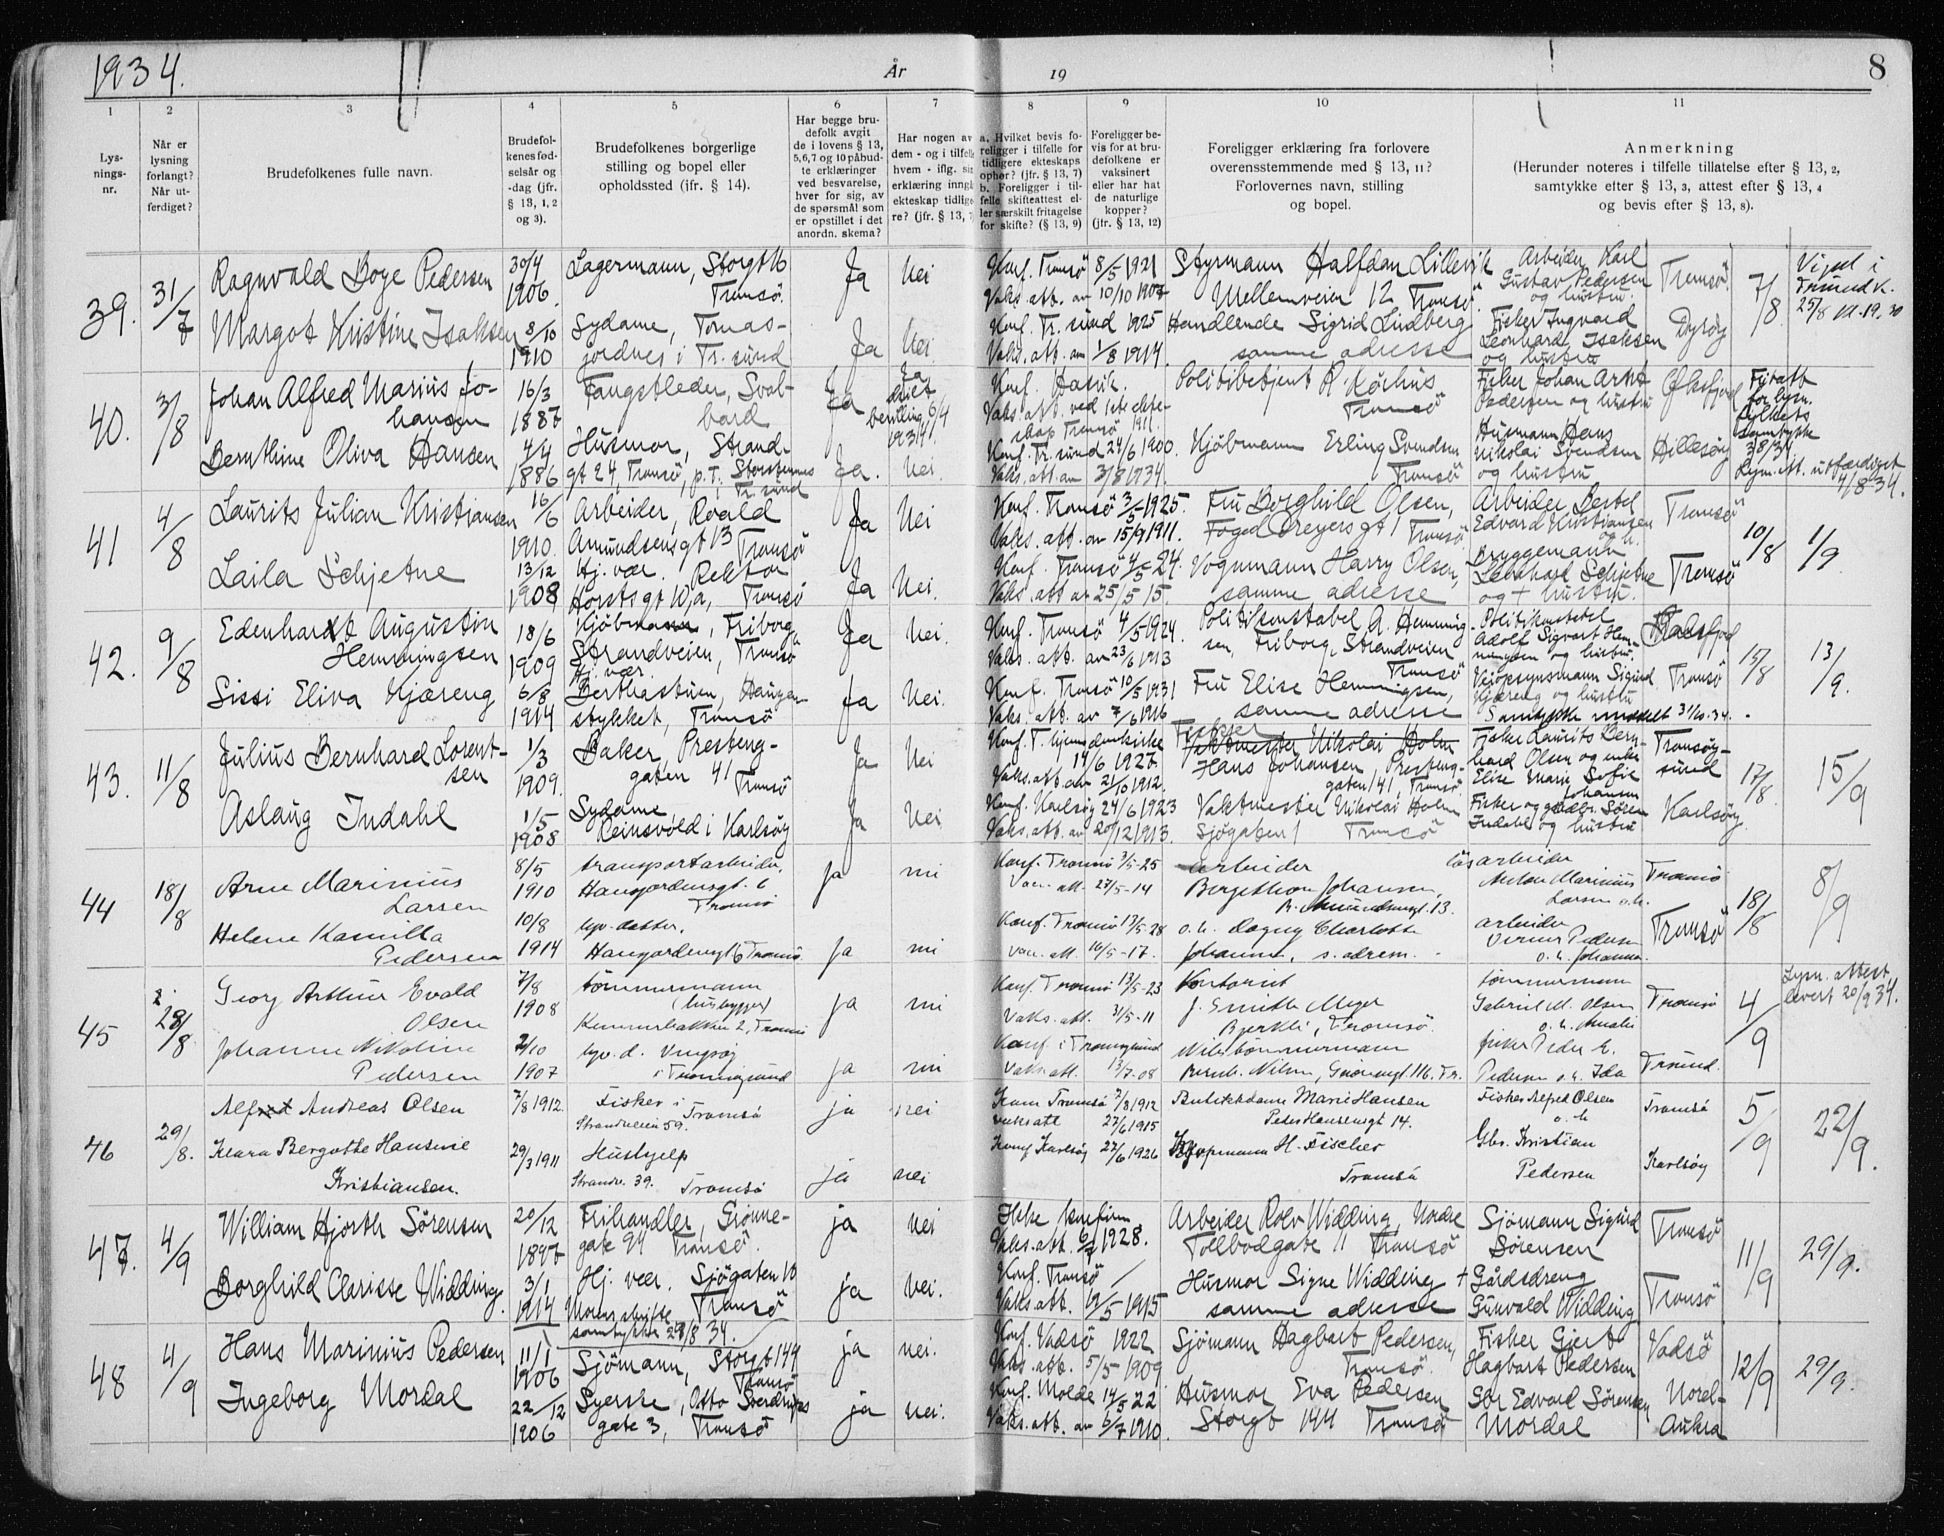 1934.
År
19
8
1
2
3
4
5
6
7
8
9
10
11
Lys-
nings-
nr.
Når er
lysning
forlangt?
Når ut-
ferdiget?
Brudefolkenes fulle navn.
Brudefol-
kenes fød-
selsår og
-dag (jfr.
§ 13, 1, 2
og 3).
Brudefolkenes borgerlige
stilling og bopel eller
opholdssted (jfr. § 14).
Har begge bru-
defolk avgit
de i lovens § 13,
5,6,7 og 10 påbud-
te erklæringer
ved besvarelse,
hver for sig, av
de spørsmål som
er opstillet i det
anordn. skema?
Har nogen av
dem - og i tilfelle
hvem - iflg. sin
erklæring inngå
ekteskap tidlige
re? (jfr. § 13, 7
a. Hvilket bevis fo-
religger i tilfelle for
tidligere ekteskaps
ophør? (jfr. § 13, 7)
b. Foreligger i til-
felle skifteattest el-
ler særskilt fritagelse
for skifte? (§ 13, 9)
Foreligger be-
vis for at bru-
defolkene er
vaksinert
eller har hat
de naturlige
kopper?
(jfr. § 13, 12)
Foreligger erklæring fra forlovere
overensstemmende med § 13, 11?
Forlovernes navn, stilling
og bopel.
Anmerkning
(Herunder noteres i tilfelle tillatelse efter § 13, 2,
samtykke efter § 13, 3, attest efter § 13, 4
og bevis efter § 13, 8).
39.
31/7
Ragnvald Boye Pedersen
30/4
1906.
Lagermann, Storgt 16
Tromsö.
Ja
Nei
Konf. Tromsö 8/5 1921
Vaks. att. av 10/10 1907
Styrmann Halfdan Lillevik
Mellemveien 12 Tromsö.
Arbeider Karl
Gustav Pedersen
og hustru.
Tromsö
7/8
Viet i
Trsund k.
25/8 kl. 19.30
Margot Kristine Isaksen
8/10
1910
Sydame, Tomas-
jordnes i Tr. sund
Ja
Nei
Konf. Tr. sund 1925
Vaks. att. av 1/8 1914.
Handlende Sigrid Lindberg
samme adresse
Fisker Ingvard
Leonhard Isaksen
og hustru
Dyröy
40.
3/8
Johan Alfred Marius Jo-
hansen
16/3
1887
Fangstleder, Sval-
bard
Ja
Ja
bevilling 6/4
1934.
Konf. Hasvik.
Vaks. att. ved
Tromsö 1911.
Politibetjent R. Körhus
Tromsö
Fisker Johan Arnt
Pedersen og hustru
Öksfjord
samtykke
3/8/34
Lysn. att. utferdiget
4/8-34.
Bernthine Oliva Hansen
4/4
1886
Husmor, Strand-
gt 24, Tromsö, p.t. Storsteinnes
i Tr. sund
Ja.
Nei.
Konf. Tr. sund 24/6 1900.
Vaks. att. av 3/8 1934.
Kjöbmann Erling Svendsen
Tromsö
Husmann Hans
Nikolai Svendsen
og hustru
Hillesöy
41
4/8
Laurits Julian Kristiansen
16/6
1910.
Arbeider, Roald
Amundsensgt 13
Tromsö
Ja
Nei
Konf. Tromsö 3/5 1925.
Vaks. att. av 15/9 1911.
Fru Borghild Olsen,
Foged Dreyersgt 1 Tromsö
Arbeider Bertel
Edvard Kristiansen
og h.
Tromsö
10/8
1/9
Laila Schjetne
13/12
1908
Hj. vær. Rektor
Horstsgt 10,a, Tromsö
Ja
Nei.
Konf. Tromsö 4/5 24.
Vaks. att av 25/5 15.
Vognmann Harry Olsen,
samme adresse
Bryggemann
Leonhard Schjetne
og + hustru.
Tromsö
42.
9/8
Edenhardt Augustin
Hemmingsen
18/6
1909
Kjöbmann, Friborg
Strandveien, Tromsö
Ja
Nei.
Konf. Tromsö 4/5 1924.
Vaks. att. av 23/6 1913
Politikonstabel A. Hemming-
sen, Friborg, Strandveien
Tromsö
Politikonstabel
Adolf Sigvart Hem-
mingsen og hustru.
Balsfjord
15/8
13/9.
Sissi Eliva Kjæreng
6/8
1914
Hj. vær.
Berthastuen, Haugan
stykket, Tromsö
Ja
Nei.
Konf. Tromsö 10/5 1931
Vaks. att. av 7/6 1916
Fru Elise Hemmingsen,
samme adresse
Kjöpsynsmann Sigurd
Kjæreng og hustru
Tromsö
Samtykke meddelt 31/10.34.
43.
11/8
Julius Bernhard Lorent-
sen
1/3
1909.
Baker, Presteng-
gaten 41
Tromsö
Ja
Nei
Konf. T. hjemsdomkirke
19/6 1927.
Vaks. att av 21/10 1912.
Fisker
Vaktmester Nikolai Holm
Hans Johansen, Presteng-
gaten 41, Tromsö
Fisker Laurits Bern-
hard Olsen og enke
Elise Marie Sofie
Johansen
Tromsöy-
sund
17/8
15/9
Aslaug Indahl
1/5
1908
Sydame
Reinsvold i Karlsöy
Ja
Nei
Konf. Karlsöy 24/6 1923
Vaks. att. av 20/12 1913.
Vaktmester Nikolai Holm
Sjögaten 1 Tromsö
Fisker og gårdbr. Sören
Indahl og hustru
Karlsöy.
44
18/8
Arne Marinius
Larsen
8/5
1910
transportarbeider,
Haugardensgt. 6
Tromsö
Ja
nei
Konf. Tromsö 3/5-25
Vac. att. 27/5-14
arbeider
Bergethon Johansen,
R. Amundsensgt. 13.
lösarbeider
Anton Marinius
Larsen o.h.
Tromsö
18/8
8/9
Helene Kamilla
Pedersen
10/8
1914
hjv. datter.
Haugardensgt 6 Tromsö
Ja
nei
Konf. Tromsö 17/5-28
Vac. att. 16/5-17.
o. h. Dagny Charlotte
Johansen, s. adresse.
arbeider
Verner Pedersen
o. h. Johanna.
Tromsö
45
28/8
Georg Arthur Evald
Olsen
7/8
1908
tömmermann
(husbygger)
Kemnerbakken 2, Tromsö
Ja
nei
Konf. Tromsö 13/5-23
Vaks. att. 31/5-11
Kontorist
J. Smith Meyer
Bjerkli, Tromsö.
tömmermann
Gabriel M. Olsen
o. h. Amalie
Tromsö
4/9
Lysn. attest
levert 20/9 34.
Johanne Nikoline
Pedersen
2/10
1907
hjv. d. Vengsöy
i Tromsöysund
Ja
nei
Konf. i Tromsösund
Vaks. att. 13/7-08
tömmermann
Bernh. Nilsen, Grönnegt. 116. Tr.
fisker Peder E.
Pedersen o.h. Ida
Trsund.
46
29/8.
Alfred Andreas Olsen
7/8 1912.
Fisker i
Strandveien 59. Tromsö
ja
nei
Konf Tromsö 7/8 1912
vaksatt 27/6 1915
Butikkdame Marie Hansen
Peder Hansensgt 14.
Fisker Alfred Olsen
o. h
Tromsö
5/9
22/9.
Klara Bergothe Hansine
Kristiansen.
29/3 1911
Hushjelp
Strandv. 39. Tromsö
ja
nei
Konf Karlsöy 27/6 1926
Kjöpmann H. Fischer
Tromsö
Gbr. Kristian
Pedersen
Karlsöy
47.
4/9
William Hjorth Sörensen
20/12
1897
Frihandler, Grönne-
gate 94 Tromsö.
ja
nei
Ikke konfirm.
Vaks. att. 6/7 1928.
Arbeider Rolv Widding, Nordre
Tollbodgate 11 Tromsö
Sjömann Sigurd
Sörensen
Tromsö
11/9
29/9.
Borghild Clarisse Widding.
3/1
1914
Hj. vær. Sjögaten 10
Tromsö
Morens skriftl.
samtykke 28/8 34.
ja
nei.
Konf. Tromsö /
Vaks. att. 19/5 1915
Husmor Signe Widding
samme adresse
+ Gårdsdreng
Gunvald Widding
Tromsö
48
4/9
Hans Marinius Pedersen
11/1
1906
Sjömann, Storgt 144
Tromsö
ja
nei.
Konf. Vadsö 1922
Vaks. att. 5/5 1909
Sjömann Dagbart Pedersen,
Tromsö.
Fisker Gjert
Hagbart Pedersen
Vadsö
12/9
29/9.
Ingeborg Mordal
22/12
1906
Syerske, Otto Sverdrups
gate 3, Tromsö
ja
nei.
Konf. Molde 14/5 22
Vaks. att. av 6/7 1910.
Husmor Eva Pedersen
Storgt 144 Tromsö
Gbr Edvard Sörensen
Mordal
Nord-
Aukra